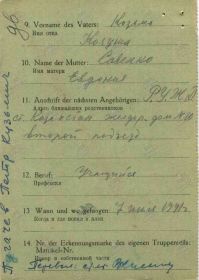 96
9. Vorname des Vaters: Козьма
Имя отца
Колуша
10. Name der Mutter: Савенко
Имя матери
Евдокия
11. Anschrift der nächsten Angehörigen: РУЖД
Адрес ближайших родственников
ст. жилдер. дом № 10
второй подъезд
12. Beruf: Учащийся
Профессия
13. Wann und wo gefangen: 7 июля 1941 г.
Когда и где попал в плен
14. Nr. der Erkennungsmarke des eigenen Truppenteils:
Matrikel-Nr.
Номер в собственной части
Пугачев Петр Кузьмич